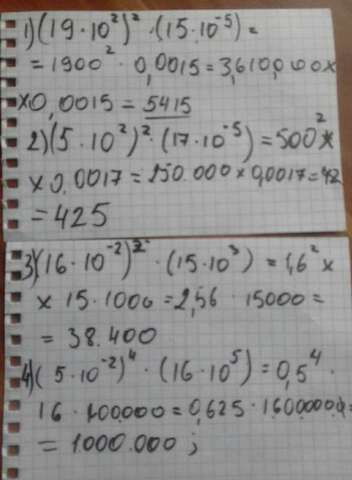 1) (19·10²)² · (15·10⁻⁵) =
= 1900² · 0,0015 = 3,610,000 x
x 0,0015 = 5415
2) (5·10²)² · (17·10⁻⁵) = 500² x
x 0,0017 = 250.000 x 0,0017 = 42
= 425
3) (16·10⁻²)² · (15·10³) = 1,6² x
x 15·1000 = 2,56 · 15000 =
= 38.400
4) (5·10⁻²)⁴ · (16·10⁵) = 0,5⁴ ·
16 · 100000 = 0,625 · 1600000 =
= 1.000.000 ;